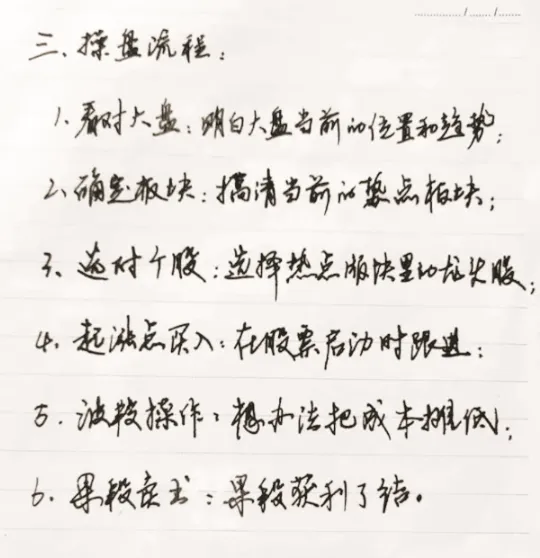 三、操盘流程：
1、看对大盘：明白大盘当前的位置和趋势；
2、确定板块：搞清当前的热点板块；
3、选对个股：选择热点版块里的龙头股；
4、起涨点买入：在股票启动时跟进；
5、波段操作：想办法把成本摊低；
6、果段卖出：果段获利了结。